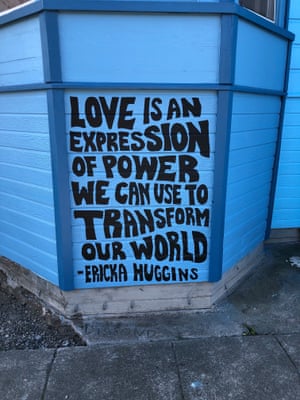 LOVE IS AN
EXPRESSION
OF POWER
WE CAN USE TO
TRANSFORM
OUR WORLD
- ERICKA HUGGINS